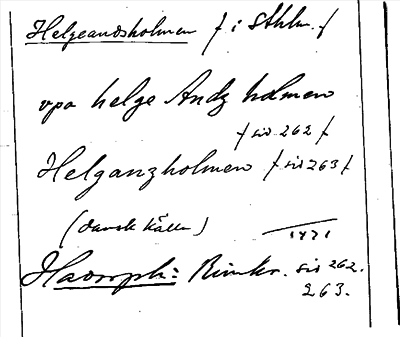 Helgeandsholmen / i Sthlm. /
vpa helge Andz holmen
/ sid 262 /
Helganzholmen / sid 263 /
(dansk källa)
1471
Havorph: Rimkr. sid 262.
263.